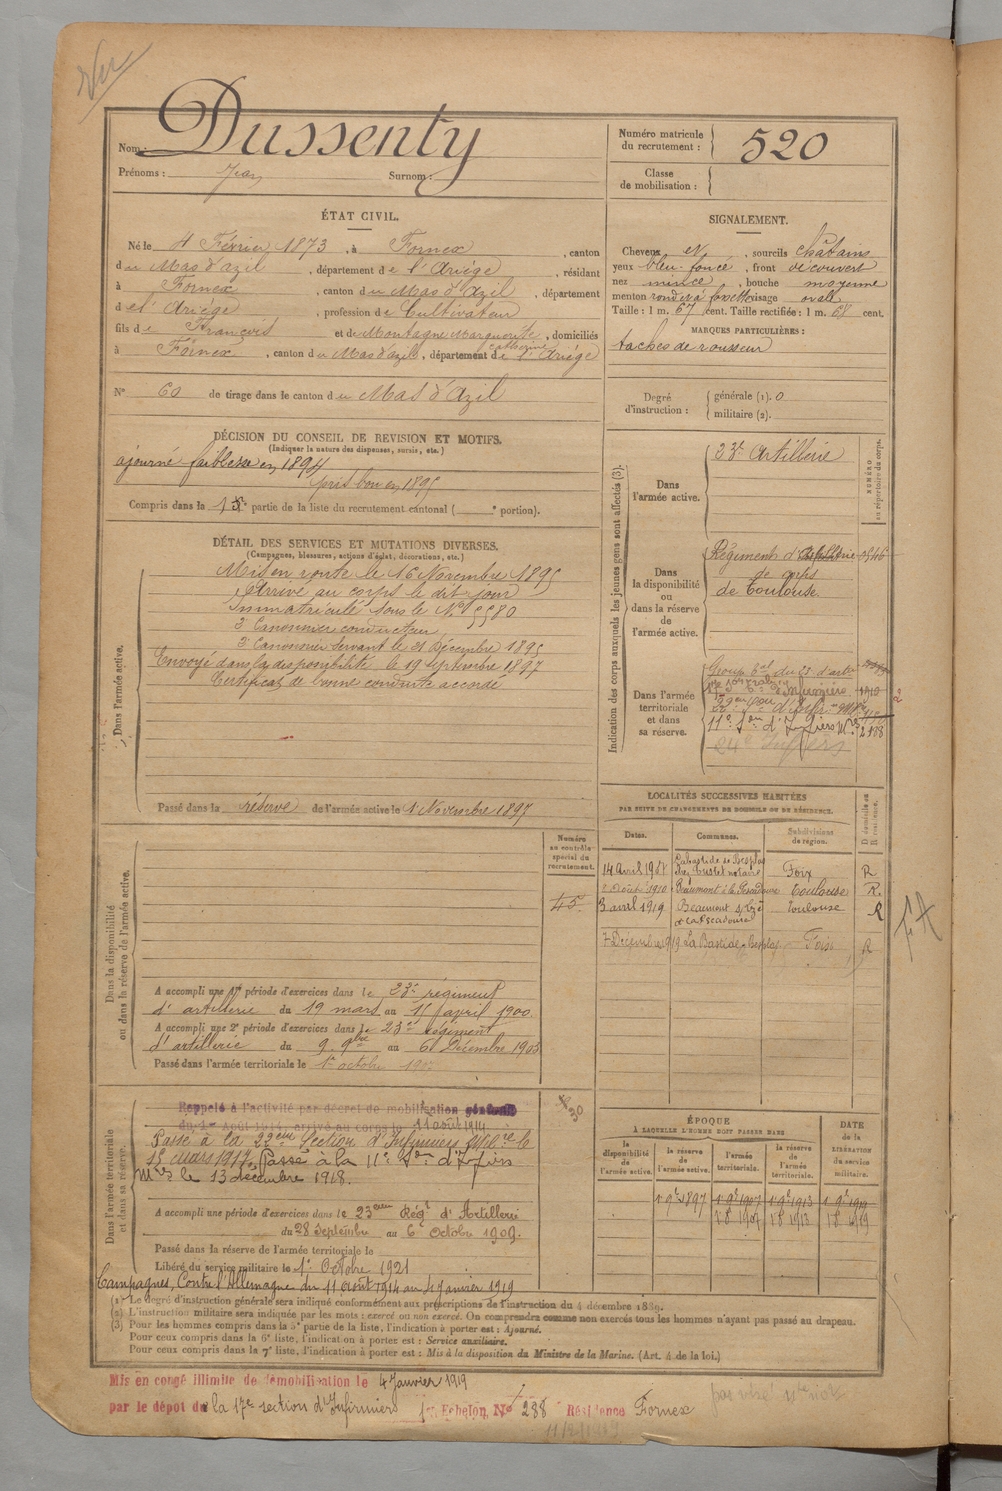 Vu
Nom : Dussenty
Prénoms : Jean Surnom :
Numéro matricule du recrutement : 520
Classe de mobilisation :
ÉTAT CIVIL.
Né le 4 Février 1873, à Fornex, canton
du Mas d'azil, département de l'Ariège, résidant
à Fornex, canton du Mas d'Azil, département
de l'Ariège, profession de Cultivateur
fils de François et de Montagne Marguerite Catherine, domiciliés
à Fornex, canton du Mas d'azil, département de l'Ariège
N° 60 de tirage dans le canton du Mas d'Azil
SIGNALEMENT.
Cheveux , sourcils châtains
yeux bleu foncé, front découvert
nez mince, bouche moyenne
menton rond à fossette visage ovale
Taille : 1 m. 67 cent. Taille rectifiée : 1 m. 68 cent.
MARQUES PARTICULIÈRES :
taches de rousseur
Degré d'instruction : générale (1). 0
militaire (2).
DÉCISION DU CONSEIL DE REVISION ET MOTIFS.
(Indiquer la nature des dispenses, sursis, etc.)
ajourné faiblesse en 1894
pris bon en 1895
Compris dans la partie de la liste du recrutement cantonal ( portion).
DÉTAIL DES SERVICES ET MUTATIONS DIVERSES.
(Campagnes, blessures, actions d'éclat, décorations, etc.)
Dans l'armée active.
Mis en route le 16 Novembre 1895
Arrivé au corps le dit jour
Immatriculé sous le N° 5580
2e Canonnier conducteur
2e Canonnier servant le 21 Décembre 1895
Envoyé dans la disponibilité le 19 Septembre 1897
Certificat de bonne conduite accordé
Passé dans la réserve de l'armée active le 1 Novembre 1897
Indication des corps auxquels les jeunes gens sont affectés (3).
NUMÉRO au répertoire du corps.
Dans l'armée active.
23e Artillerie
Dans la disponibilité ou dans la réserve de l'armée active.
Régiment d'Artillerie
de corps
de Toulouse
Dans l'armée territoriale et dans sa réserve.
11e Son d'Infiers Mres 2188
LOCALITÉS SUCCESSIVES HABITÉES
PAR SUITE DE CHANGEMENTS DE DOMICILE OU DE RÉSIDENCE.
Dates. Communes. Subdivisions de région. D domicile ou R résidence.
14 avril 1907 Labastide de Besplas Foix R
1910 Beaumont Toulouse R.
3 avril 1919 Beaumont s/Lèze Toulouse R
7 Décembre 919 La Bastide Besplas Foix R
Dans la disponibilité ou dans la réserve de l'armée active.
Numéro au contrôle spécial du recrutement.
45
A accompli une 1re période d'exercices dans le 23e régiment
d'artillerie du 19 mars au 15 avril 1900.
A accompli une 2e période d'exercices dans le 23e régiment
d'artillerie du 9 9bre au 6 Décembre 1903
Passé dans l'armée territoriale le 1er octobre
Dans l'armée territoriale et dans sa réserve.
Rappelé à l'activité par décret de mobilisation générale
du 1er Août 1914, arrivé au corps le 11 août 1914
Passé à la 22eme Section d'Infirmiers Mre le
15 mars 1917. Passé à la 11e Son d'Infiers
Mres le 13 décembre 1918.
A accompli une période d'exercices dans le 23eme Régt d'Artillerie
du 28 Septembre au 6 Octobre 1909.
Passé dans la réserve de l'armée territoriale le
Libéré du service militaire le 1er Octobre 1921
Campagnes, Contre l'Allemagne du 11 août 1914 au 4 Janvier 1919
ÉPOQUE
À LAQUELLE L'HOMME DOIT PASSER DANS
DATE de la LIBÉRATION du service militaire.
la disponibilité de l'armée active. la réserve de l'armée active. l'armée territoriale. la réserve de l'armée territoriale.
(1) Le degré d'instruction générale sera indiqué conformément aux prescriptions de l'instruction du 4 décembre 1889.
(2) L'instruction militaire sera indiquée par les mots : exercé ou non exercé. On comprendra comme non exercés tous les hommes n'ayant pas passé au drapeau.
(3) Pour les hommes compris dans la 5e partie de la liste, l'indication à porter est : Ajourné.
Pour ceux compris dans la 6e liste, l'indication à porter est : Service auxiliaire.
Pour ceux compris dans la 7e liste, l'indication à porter est : Mis à la disposition du Ministre de la Marine. (Art. 4 de la loi.)
Mis en congé illimité de démobilisation le 4 Janvier 1919
par le dépôt de la 17e section d'Infirmiers 1er Echelon, N° 288 Résidence Fornex